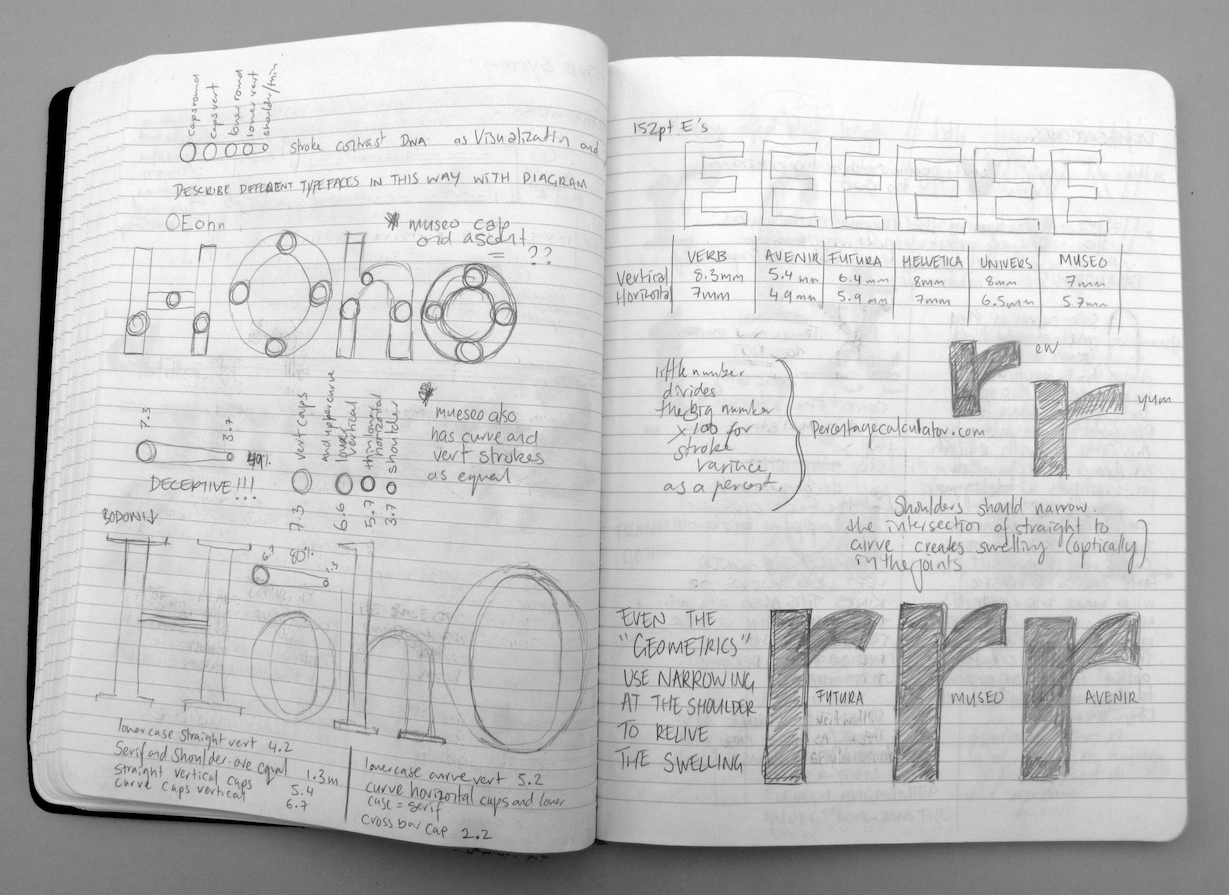 caps round
caps vert
lower round
lower vert
shoulder/thin
stroke contrast DNA as Visualization and
DESCRIBE DIFFERENT TYPEFACES IN THIS WAY WITH DIAGRAM.
OEohn
museo cap
and ascent
= ??
Hoho
7.3
3.7
49%
DECEPTIVE!!!
vert caps
and upper curve
lower
vertical
thin lower
horizontal
shoulder
7.3
6.6
5.7
3.7
mueseo also
has curve and
vert strokes
as equal
BODONI ↓
6.7
80%
1.3
HohO
lowercase straight vert 4.2
Serif and Shoulder are equal 1.3m
straight vertical caps 5.4
curve caps vertical 6.7
lowercase curve vert 5.2
curve horizontal caps and lower
case = serif
cross bar cap 2.2
152pt E's
E E E E E E
VERB AVENIR FUTURA HELVETICA UNIVERS MUSEO
Vertical 8.3mm 5.4mm 6.4mm 8mm 8mm 7mm
Horizontal 7mm 4.9mm 5.9mm 7mm 6.5mm 5.7mm
little number
divides
the big number
x 100 for
stroke
variance
as a percent.
percentagecalculator.com
r ew
r yum
Shoulders should narrow.
the intersection of straight to
curve creates swelling (optically)
in the joints
EVEN THE
"GEOMETRICS"
USE NARROWING
AT THE SHOULDER
TO RELIVE
THE SWELLING
r FUTURA
r MUSEO
r AVENIR